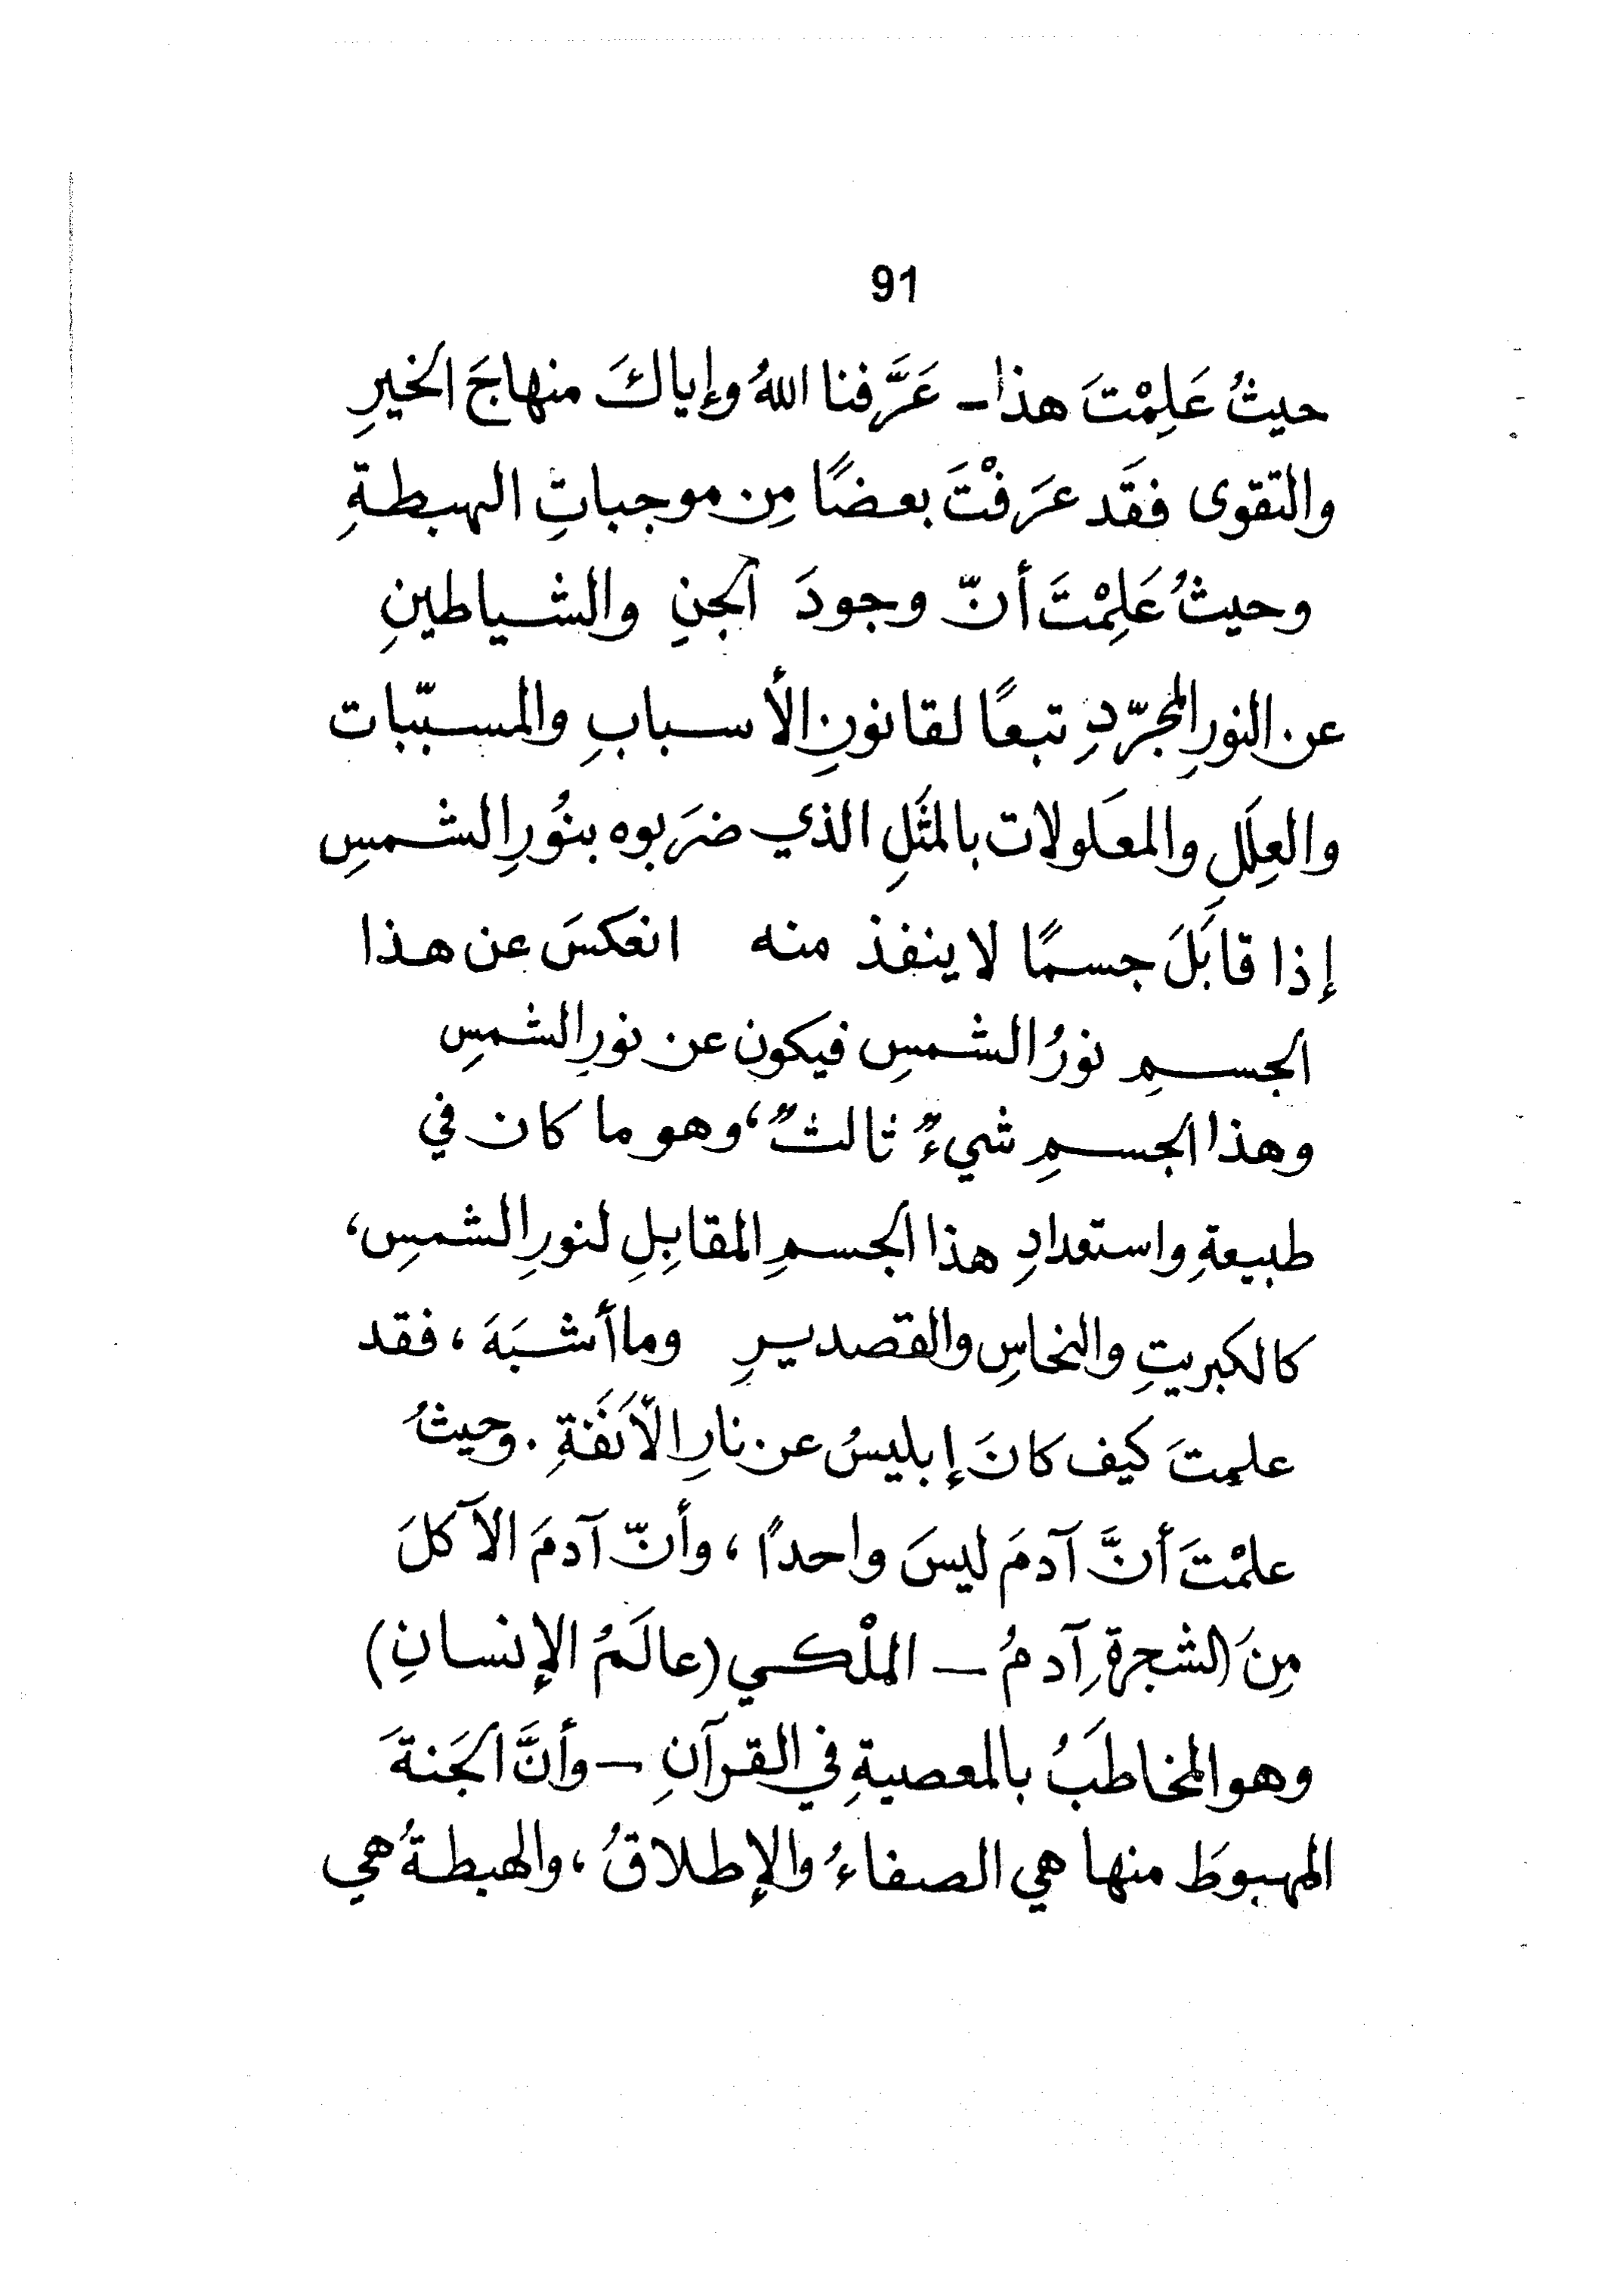 91
حيثُ عَلِمْتَ هذا - عَرَّفنا اللهُ وإياكَ منهاجَ الخيرِ
والتقوى فقَد عرَفْتَ بعضًا مِن موجباتِ الهبطةِ
وحيثُ عَلِمْتَ أنّ وجودَ الجنِ والشياطينِ
عن النورِ المجرّدِ تبعًا لقانونِ الأسبابِ والمسبّبات
والعِلَلِ والمعَلولات بالمثَلِ الذي ضرَبوه بنُورِ الشمسِ
إذا قابَلَ جسمًا لا ينفذ منه انعكسَ عن هذا
الجسمِ نورُ الشمسِ فيكون عن نورِ الشمسِ
وهذا الجسمِ شيءٌ ثالثٌ، وهو ما كان في
طبيعةِ واستعدادِ هذا الجسمِ المقابِلِ لنورِ الشمسِ،
كالكبريتِ والنحاسِ والقصديرِ وما أشبَهَ، فقد
علمتَ كيف كانَ إبليسُ عن نارِ الأنَفَةِ. وحيثُ
علمْتَ أنَّ آدمَ ليسَ واحدًا، وأنّ آدمَ الآكلَ
مِنَ الشجرةِ آدمُ - الملْكي (عالَمُ الإنسانِ)
وهو المخاطَبُ بالمعصيةِ في القرآنِ - وأنَّ الجَنةَ
المهبوطَ منها هي الصفاءُ والإطلاقُ، والهبطةُ هي